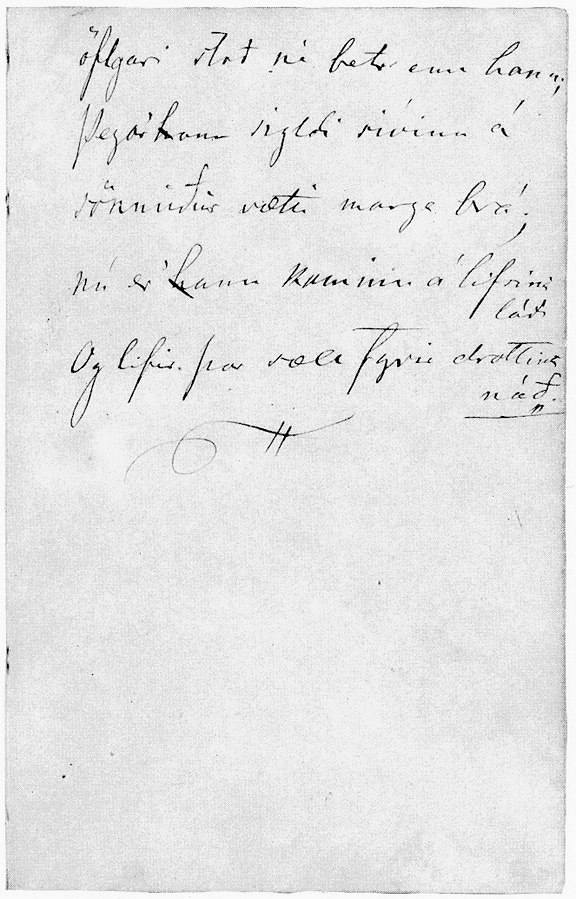 öflgari stoð né betr enn hann;
Þegar hann sigldi sióinn á
væta marga brá;
nú er hann kominn á lífsins
láð
Og lifir þar væll fyrir drottins
náð.